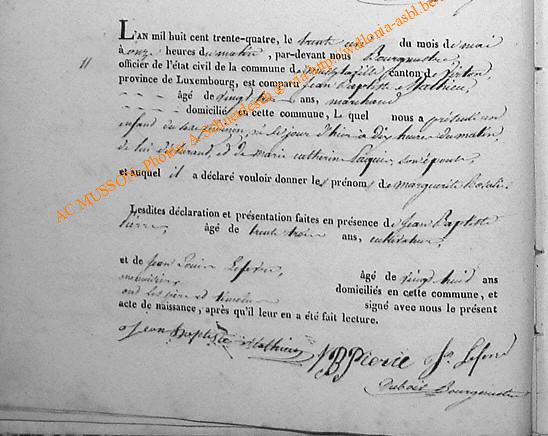 L'AN mil huit cent trente-quatre, le trente un du mois de mai
à onze heures du matin, par-devant nous Bourgmestre
11 officier de l'état civil de la commune de canton de Virton,
province de Luxembourg, est comparu Jean Baptiste Mathieu,
âgé de vingt ans, marchand
domicilié en cette commune, Lequel nous a présenté un
enfant du sexe féminin, né le jour d'hier à dix heures du matin,
de lui déclarant, et de Marie Catherine son épouse,
et auquel il a déclaré vouloir donner les prénoms de Marguerite
Lesdites déclaration et présentation faites en présence de Jean Baptiste
Pierre, âgé de trente trois ans, cultivateur,
et de Jean Louis Lefevre, âgé de vingt huit ans
menuisier, domiciliés en cette commune, et
ont les père et témoins signé avec nous le présent
acte de naissance, après qu'il leur en a été fait lecture.
Jean Baptiste Mathieu JB Pierre Lefevre
Bourgmestre
AC MUSSON, Photos A. Schneidesch @ via http://wallonia-asbl.be